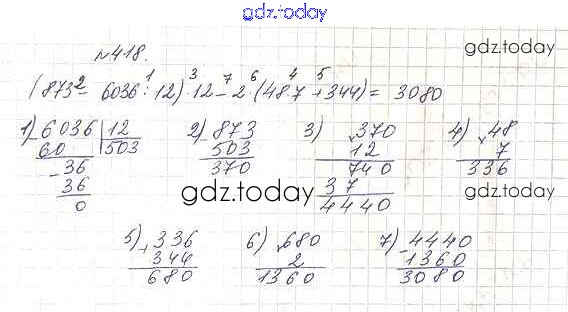 gdz.today
№418.
gdz.today
(873 - 6036 : 12) · 12 - 2 · (48 · 7 + 344) = 3080
2 1 3 7 6 4 5
1) 6036 | 12
60 503
- 36
36
0
2) - 873
503
370
3) × 370
12
740
37
4440
4) × 48
7
336
gdz.today
gdz.today
5) + 336
344
680
6) × 680
2
1360
7) - 4440
1360
3080